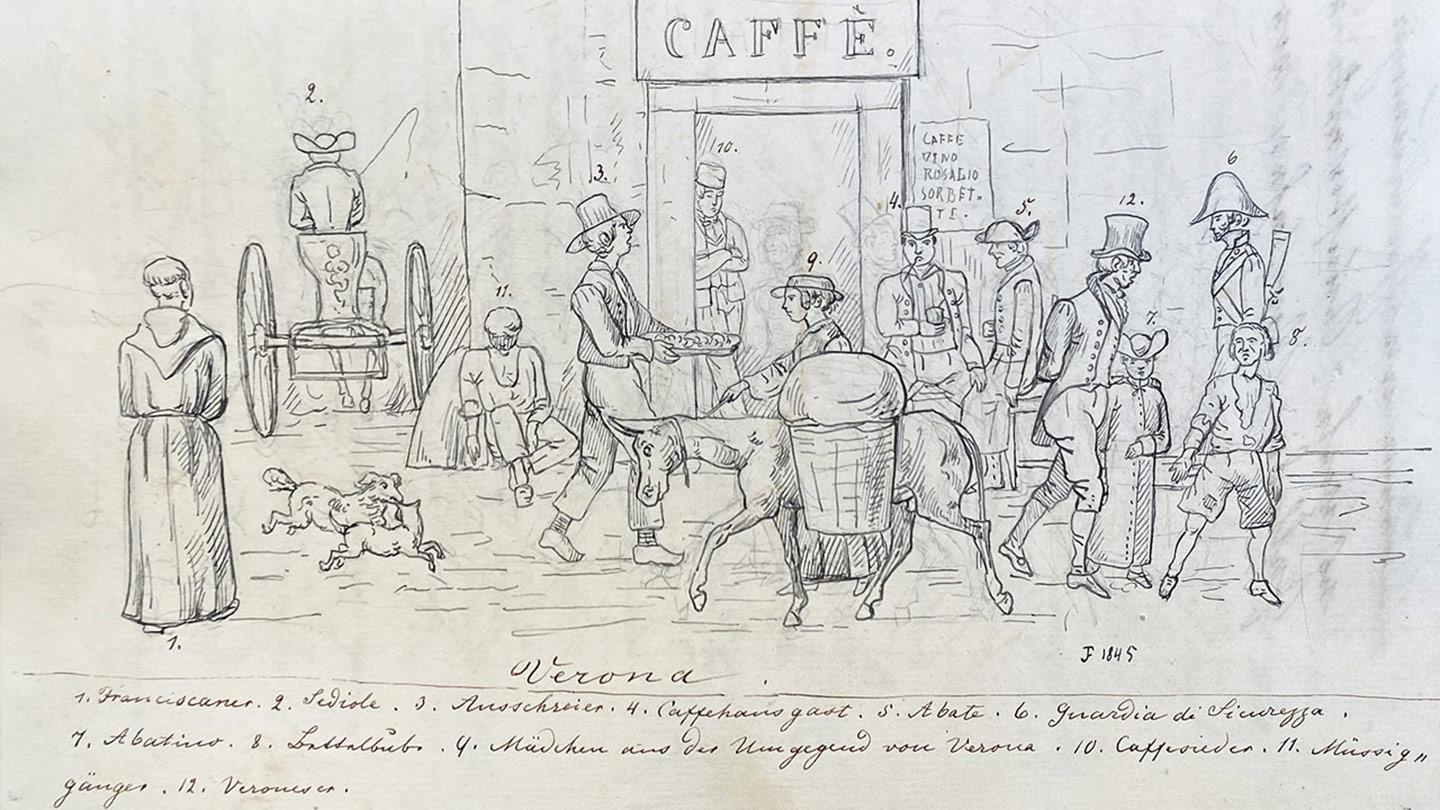 CAFFÈ.
2.
10.
3.
CAFFE
VINO
ROSALIO
SORBET-
TE.
6
4.
5.
12.
9.
11.
7.
8.
1.
F 1845
Verona.
1. Franciscaner. 2. Sediole. 3. Ausschreier. 4. Caffehausgast. 5. Abate. 6. Guardia di Sicurezza.
7. Abatino. 8. Bettelbub. 9. Mädchen aus der Umgegend von Verona. 10. Caffesieder. 11. Müssig„
gänger. 12. Veroneser.